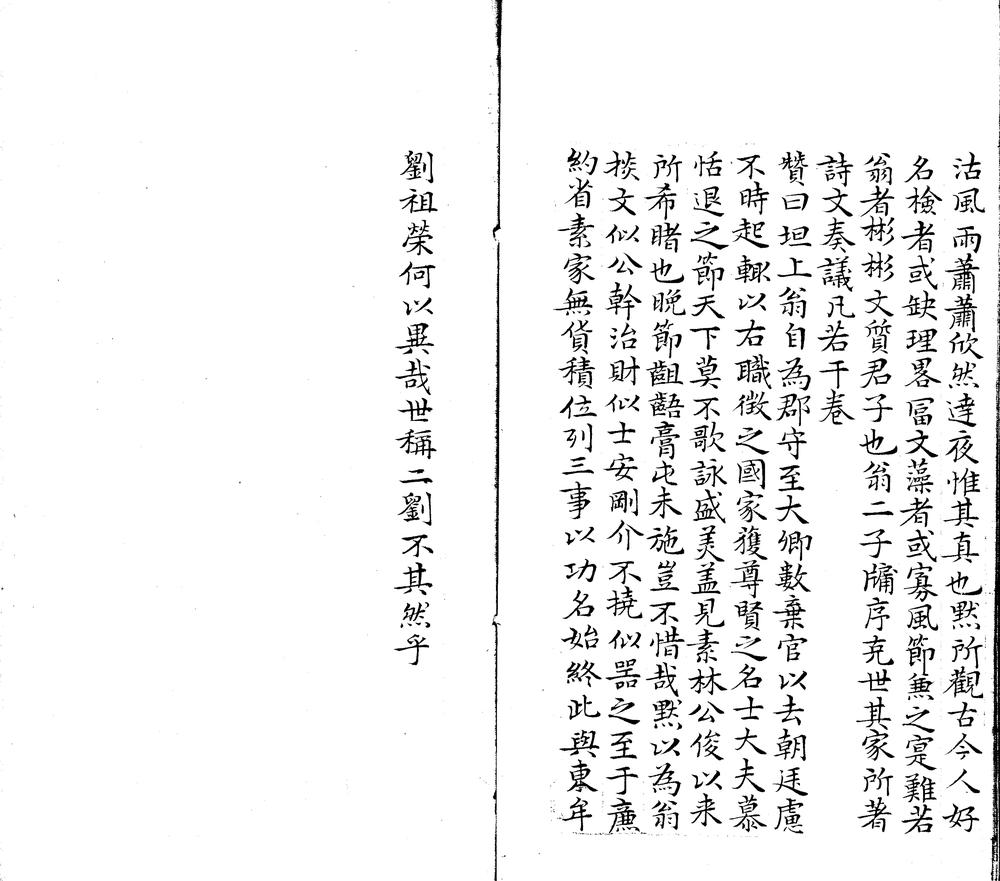 沽風雨蕭蕭欣然達夜惟其真也黙所觀古今人好
名檢者或缺理畧冨文藻者或寡風節兼之寔難若
翁者彬彬文質君子也翁二子牗序克世其家所著
詩文奏議凡若干卷
贊曰坦上翁自為郡守至大卿數棄官以去朝廷慮
不時起輙以右職徴之國家獲尊賢之名士大夫慕
恬退之節天下莫不歌詠盛美盖見素林公俊以来
所希睹也晩節齟齬膏屯未施豈不惜哉黙以為翁
掞文似公幹治財似士安剛介不撓似器之至于㢘
約省素家無貨積位列三事以功名始終此與東牟
劉祖榮何以異哉世稱二劉不其然乎